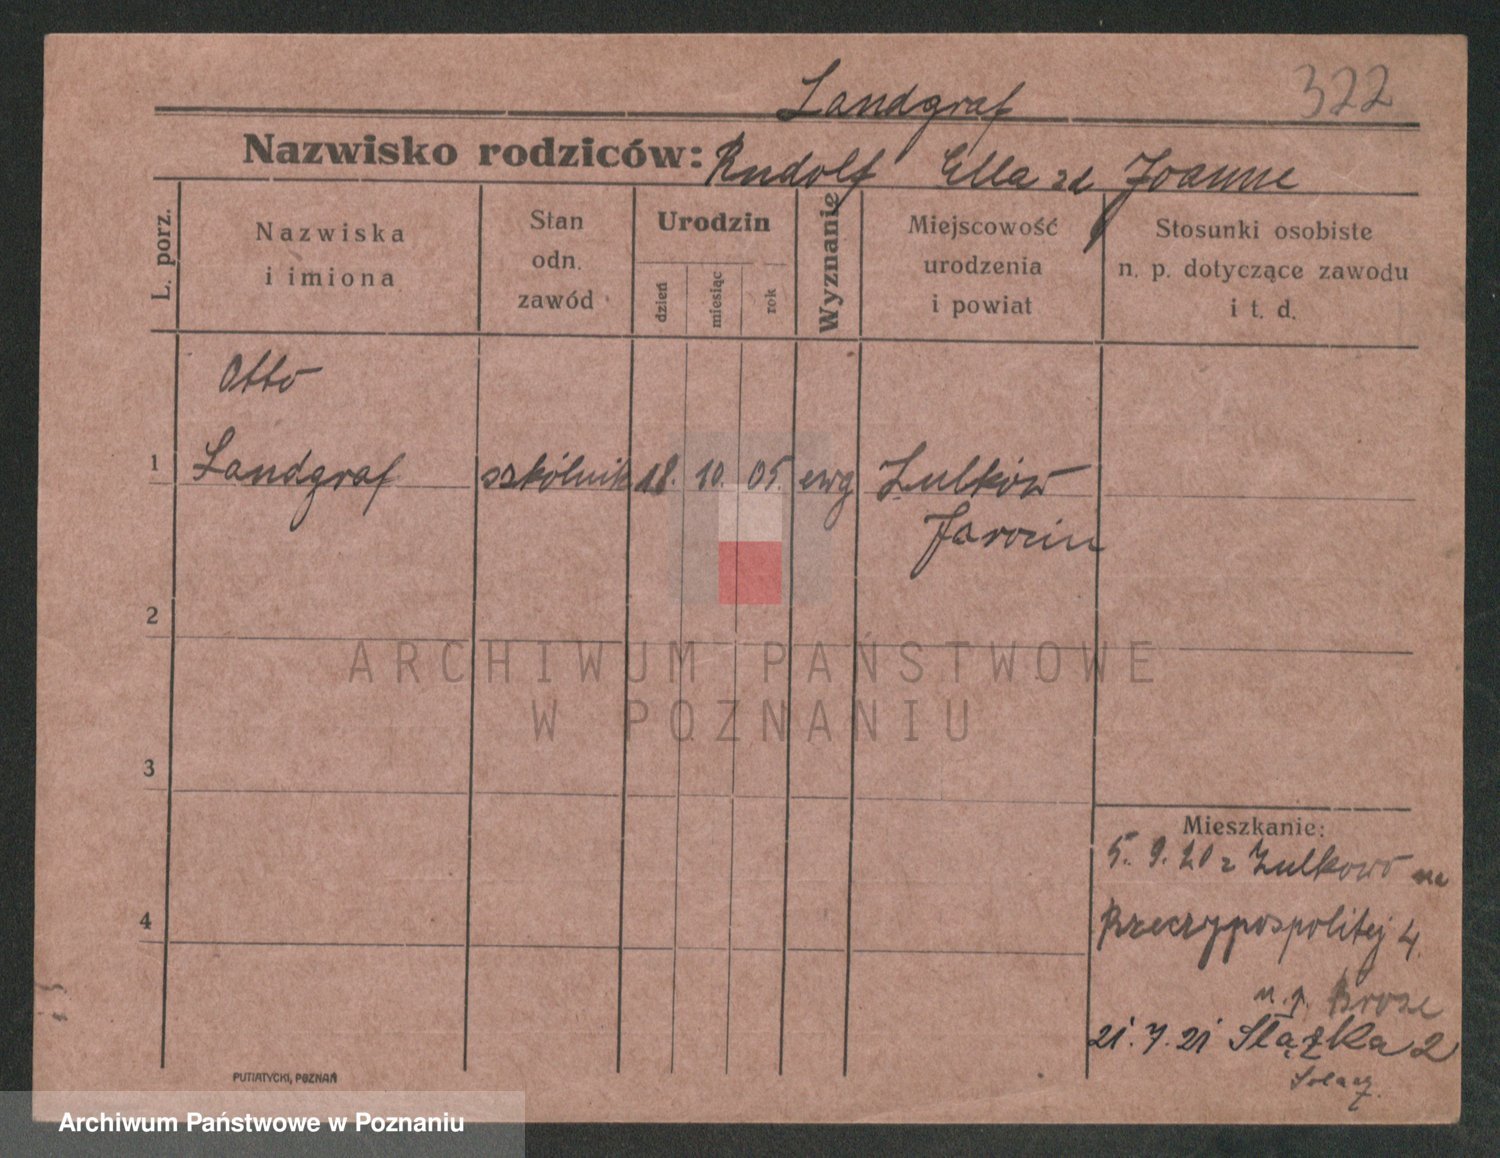 322
Landgraf
Nazwisko rodziców: Rudolf Ella zd Joanne
L. porz.
Nazwiska
i imiona
Stan
odn.
zawód
Urodzin
dzień
miesiąc
rok
Wyznanie
Miejscowość
urodzenia
i powiat
Stosunki osobiste
n. p. dotyczące zawodu
i t. d.
Otto
1 Landgraf szkólnik 18. 10. 05. ewg Żulków
Jarocin
2
3
4
Mieszkanie:
5. 9. 20 z Zulkowo na
Rzeczypospolitej 4.
u. p. Brose
21. 7. 21 Slązka 2
Solacz
PUTIATYCKI, POZNAŃ
ARCHIWUM PAŃSTWOWE
W POZNANIU
Archiwum Państwowe w Poznaniu